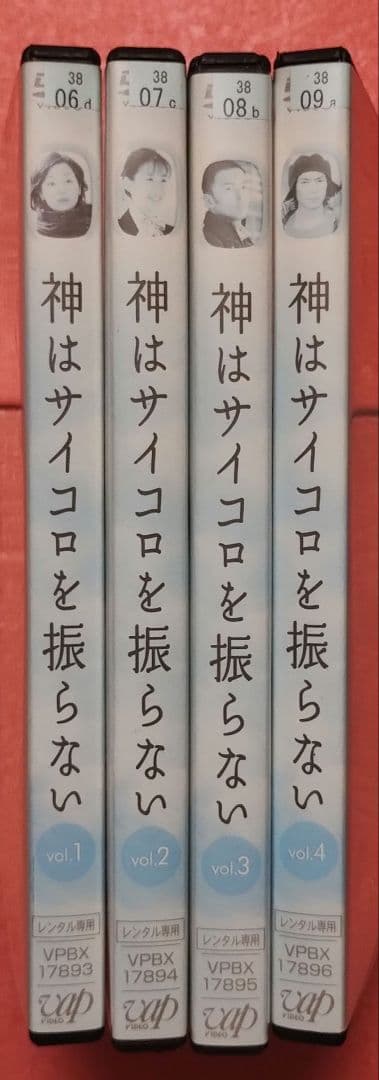 38
06 d
神はサイコロを振らない
vol.1
レンタル専用
VPBX
17893
vap
VIDEO
38
07 c
神はサイコロを振らない
vol.2
レンタル専用
VPBX
17894
vap
VIDEO
38
08 b
神はサイコロを振らない
vol.3
レンタル専用
VPBX
17895
vap
VIDEO
38
09 a
神はサイコロを振らない
vol.4
レンタル専用
VPBX
17896
vap
VIDEO